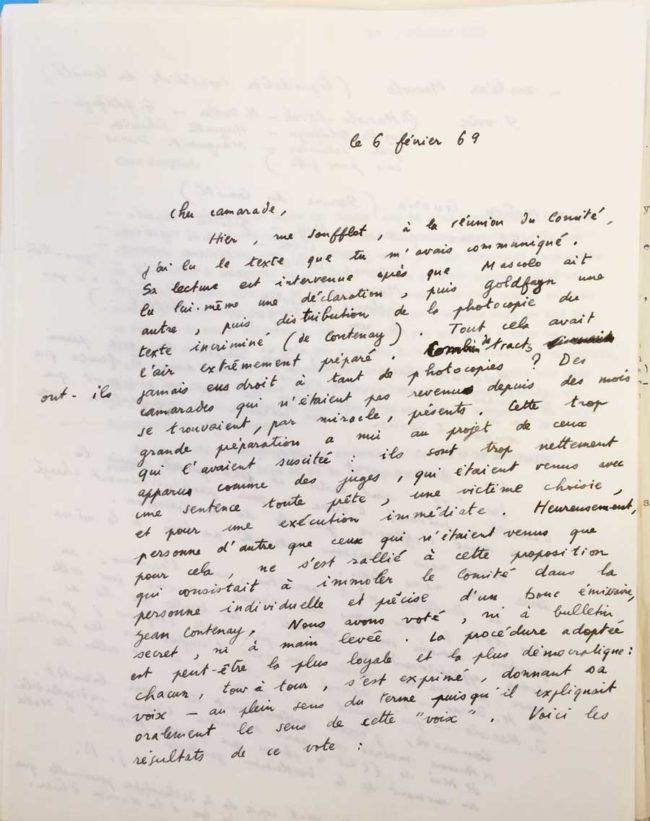 le 6 février 69
Cher camarade,
Hier, rue Soufflot, à la réunion du Comité,
j'ai lu le texte que tu m'avais communiqué.
Sa lecture est intervenue après que Mascolo ait
lu lui-même une déclaration, puis Goldfayn une
autre, puis distribution de la photocopie du
texte incriminé (de Contenay). Tout cela avait
l'air extrêmement préparé. Combien de tracts
ont-ils jamais eus droit à tant de photocopies ? Des
camarades qui n'étaient pas revenus depuis des mois
se trouvaient, par miracle, présents. Cette trop
grande préparation a nui au projet de ceux
qui l'avaient suscitée : ils sont trop nettement
apparus comme des juges, qui étaient venus avec
une sentence toute prête, une victime choisie,
et pour une exécution immédiate. Heureusement,
personne d'autre que ceux qui n'étaient venus que
pour cela, ne s'est rallié à cette proposition
qui consistait à immoler le Comité dans la
personne individuelle et précise d'un bouc émissaire,
Jean Contenay. Nous avons voté, ni à bulletin
secret, ni à main levée. La procédure adoptée
est peut-être la plus loyale et la plus démocratique :
chacun, tour à tour, s'est exprimé, donnant sa
voix – au plein sens du terme puisqu'il expliquait
oralement le sens de cette "voix". Voici les
résultats de ce vote :